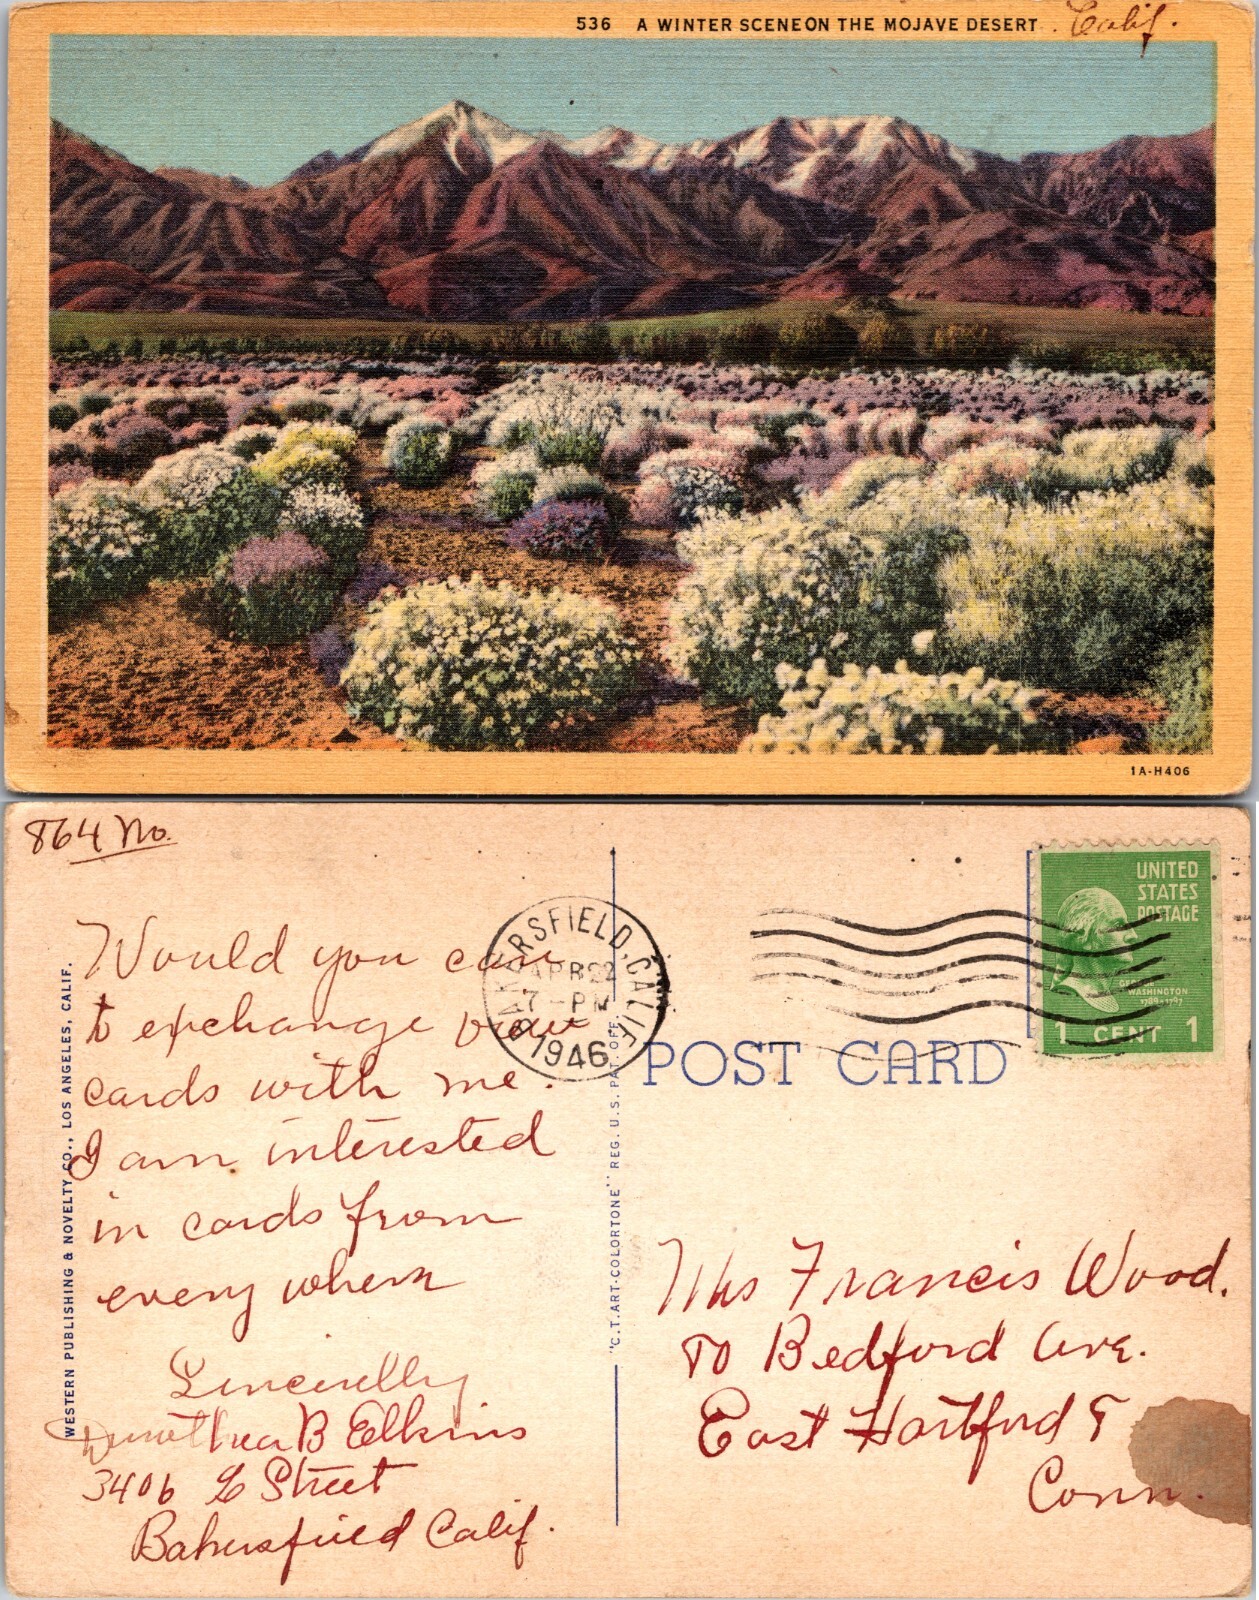 536 A WINTER SCENE ON THE MOJAVE DESERT. Calif.
1A-H406
864 No.
Would you care
to exchange view
cards with me.
I am interested
in cards from
every where
Sincerelly
Dorothea B Elkins
3406 L Street
Bakersfield Calif.
WESTERN PUBLISHING & NOVELTY CO., LOS ANGELES, CALIF.
BAKERSFIELD, CALIF.
APR 22
7-PM
1946
"C.T. ART-COLORTONE" REG. U.S. PAT. OFF.
POST CARD
UNITED
STATES
POSTAGE
GEORGE
WASHINGTON
1789-1797
1 CENT 1
Mrs Francis Wood.
Bedford Ave.
East Hartford 8
Conn.